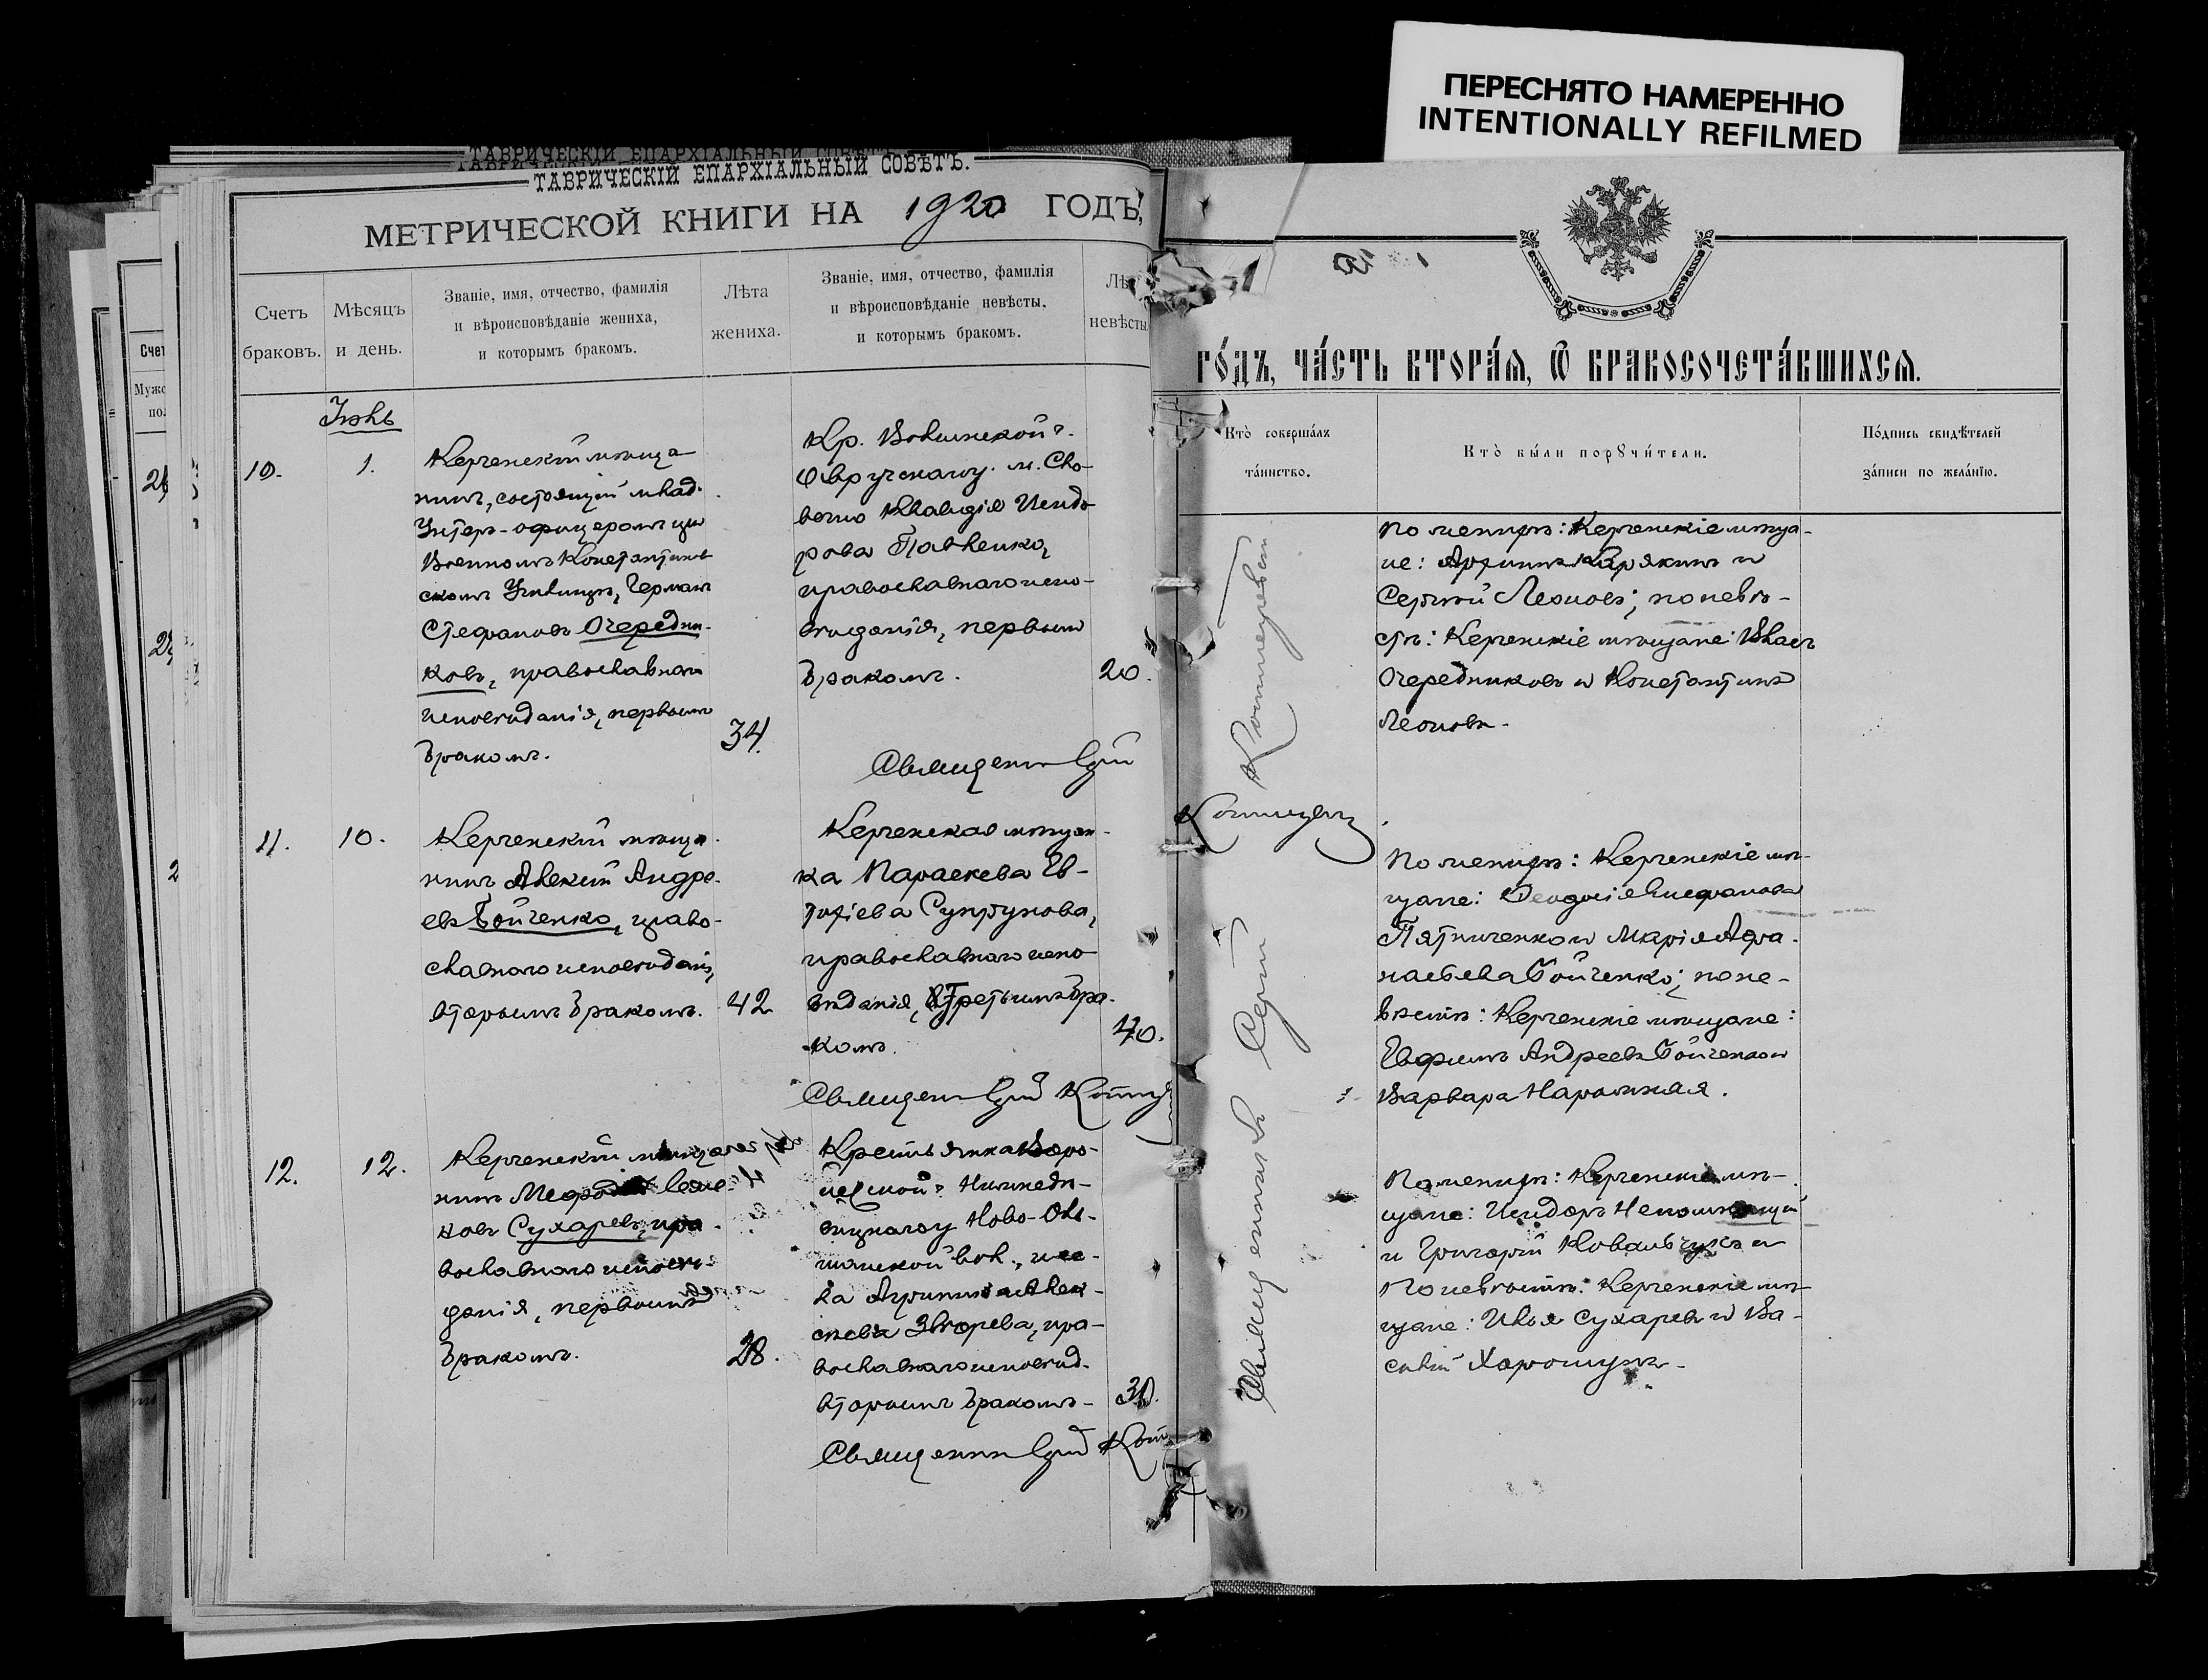 ПЕРЕСНЯТО НАМЕРЕННО
INTENTIONALLY REFILMED
ТАВРИЧЕСКІЙ ЕПАРХІАЛЬНЫЙ СОВѢТЪ.
МЕТРИЧЕСКОЙ КНИГИ НА 1920 ГОДЪ,
Счетъ
браковъ.
Мѣсяцъ
и день.
Званіе, имя, отчество, фамилія
и вѣроисповѣданіе жениха,
и которымъ бракомъ.
Лѣта
жениха.
Званіе, имя, отчество, фамилія
и вѣроисповѣданіе невѣсты,
и которымъ бракомъ.
Лѣ
невѣсты
Іюль
10.
1.
Керченскій мѣща
нинъ, состоящій млад.
Унтеръ-офицеромъ при
Военномъ Константинов
скомъ Училищѣ, Германъ
Стефановъ Очередни-
ковъ, православнаго
исповѣданія, первымъ
бракомъ.
34.
Кр. Волынской г.
Овручскаго у. м. Сло-
вечно Клавдія Исидо
рова Павленко,
православнаго испо-
вѣданія, первымъ
бракомъ.
20.
Священник Сергій
11.
10.
Керченскій мѣща
нинъ Алексій Андре-
евъ Бойченко, право-
славнаго исповѣданія,
вторымъ бракомъ.
42
Керченская мѣщан-
ка Параскева Ев-
тихіева Супрунова,
православнаго испо
вѣданія, третьимъ бра-
комъ.
40.
Священ Сергій
12.
12.
Керченскій мѣща
нинъ Мефодій Семе-
новъ Сухаревъ, пра-
вославнаго исповѣ-
данія, первымъ
бракомъ.
28.
Крестьянка Воро-
нежской г. Нижнедѣ-
вицкаго у Ново-Оль-
шанской вол.,
Агрипина Алек-
сѣева Звѣрева, пра-
вославнаго исповѣд.
вторымъ бракомъ
30.
Священник Сергій
го́дъ, ча́сть втора́ѧ, ѡ҆ бракосочета́вшихсѧ.
Кто̀ соверша́лъ
та́инство.
Кто̀ бы́ли порꙋчи́тели.
По́дпись свидѣ́телей
за́писи по жела́нїю.
Священникъ Сергій
По женихѣ: Керченскіе мѣща-
не: Карякинъ и
Сергѣй Леоновъ; по невѣ-
стѣ: Керченскіе мѣщане: Власъ
Очередниковъ и Константинъ
Леоновъ.
По женихѣ: Керченскіе мѣ-
щане: Феодосія Стефанова
Пятниченко и Марія Афа-
насьева Бойченко; по не-
вѣстѣ: Керченскіе мѣщане:
Евфимъ Андреевъ Бойченко и
Варвара Нарожная.
По женихѣ: Керченскіе мѣ-
щане: Исидоръ Непомнящій
и Григорій Ковальчукъ и
По невѣстѣ: Керченскіе мѣ-
щане: Илья Сухаревъ и Ва-
силій Харошунъ